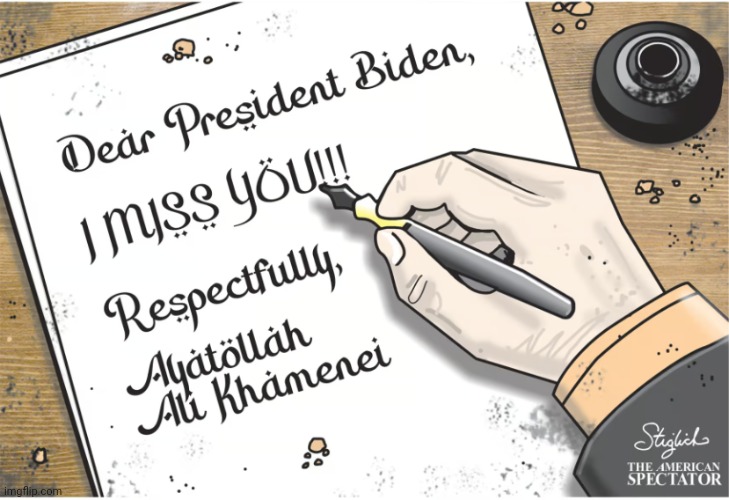 Dear President Biden,
I MISS YOU!!!
Respectfully,
Ayatollah
Ali Khamenei
Stiglich
THE AMERICAN
SPECTATOR
imgflip.com